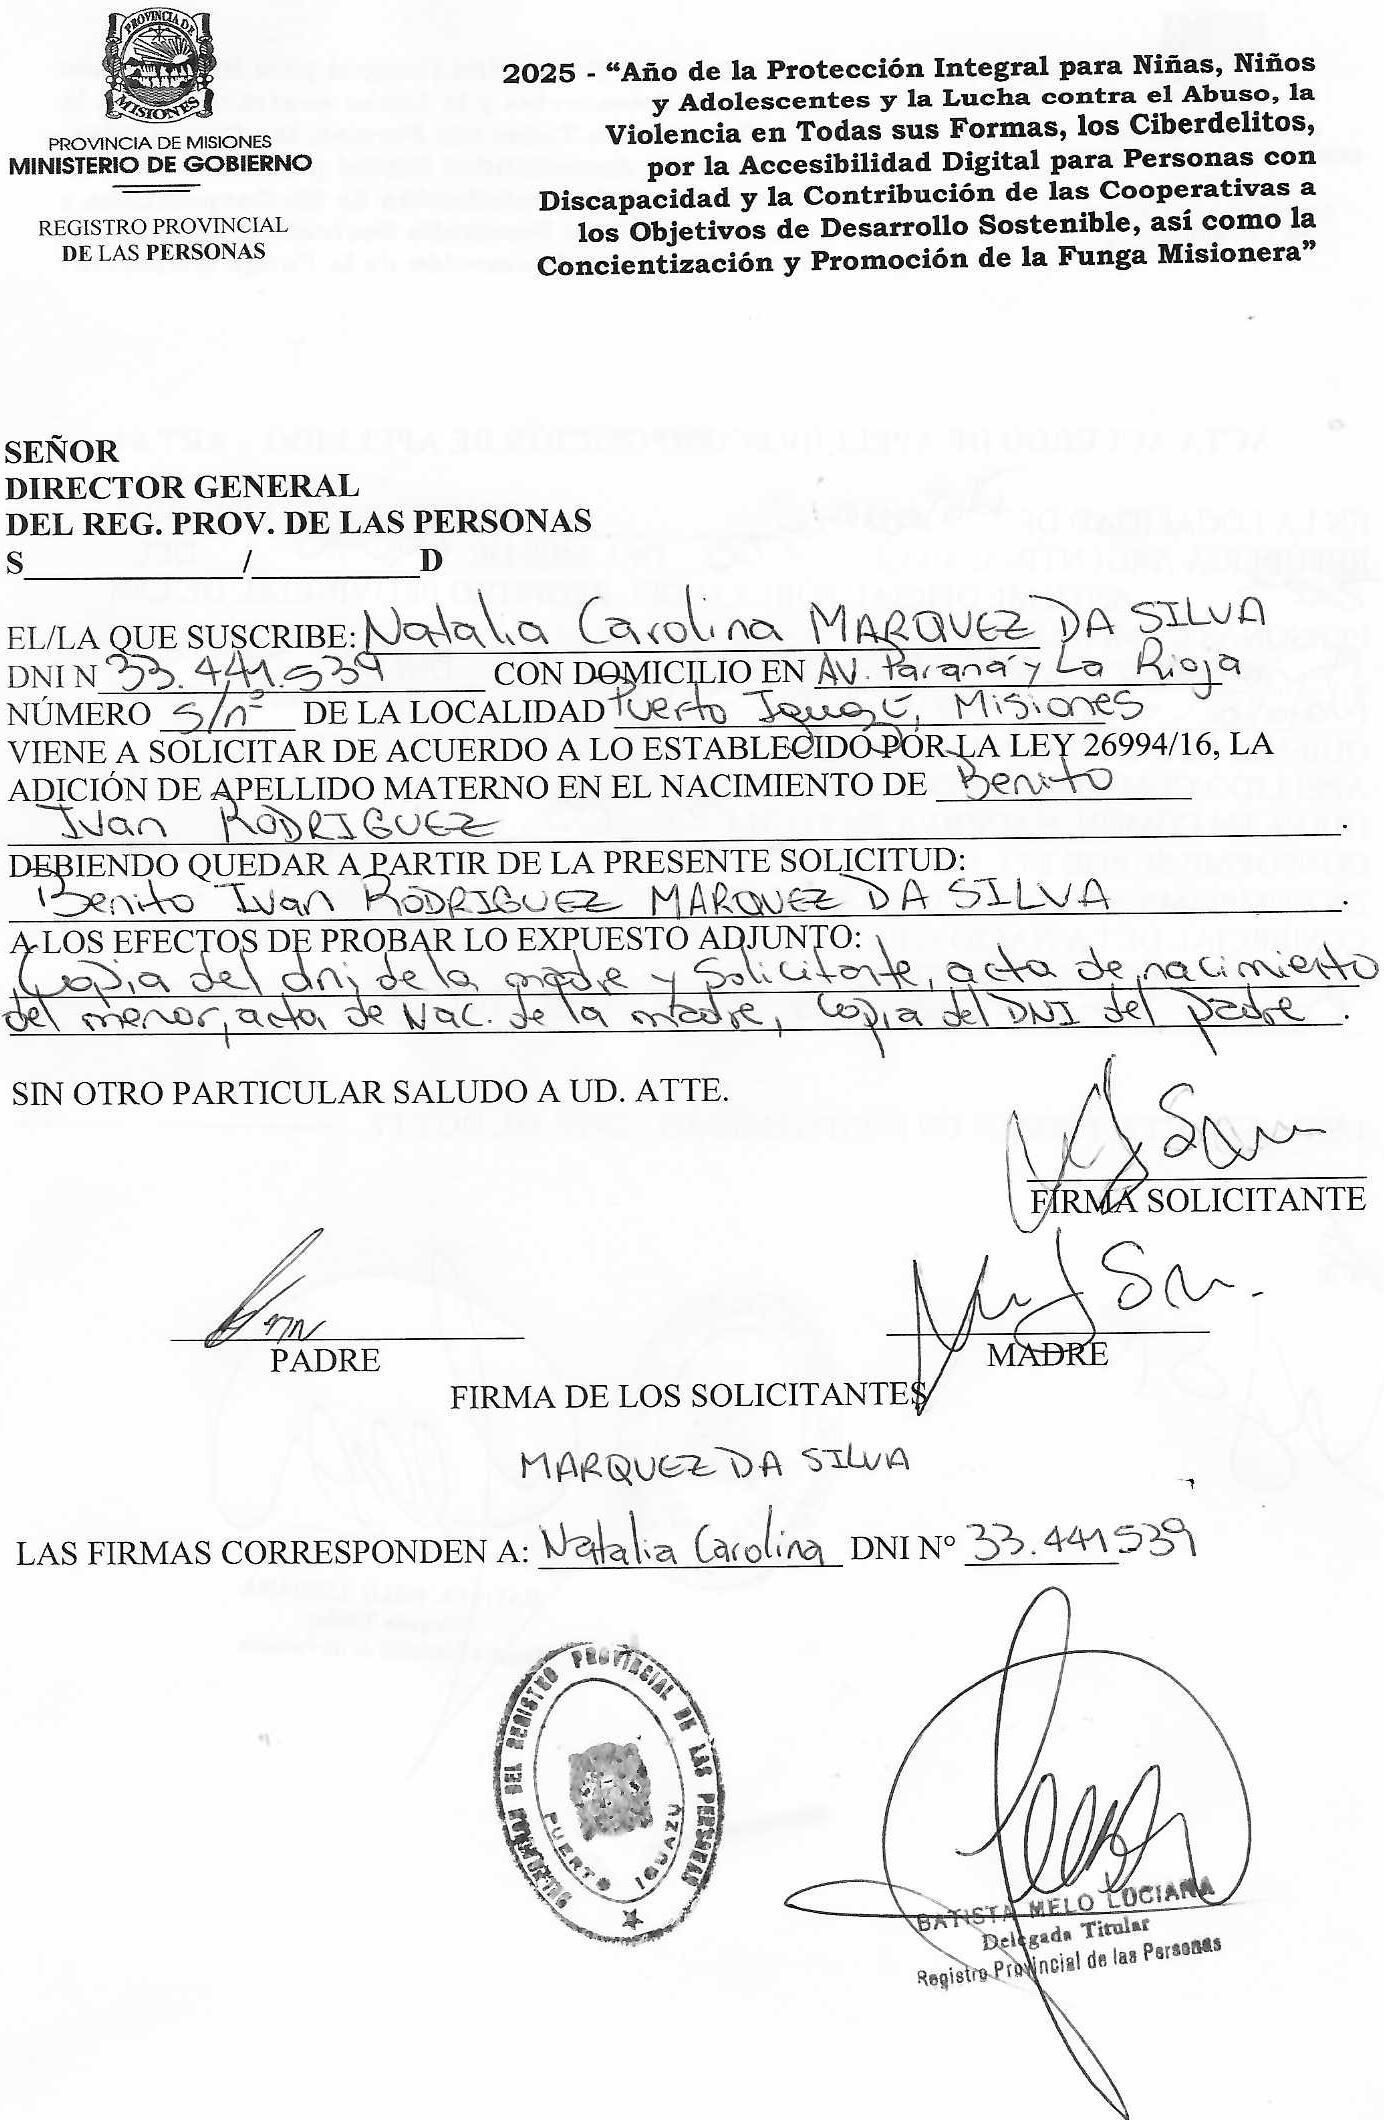 PROVINCIA DE
MISIONES
PROVINCIA DE MISIONES
MINISTERIO DE GOBIERNO
REGISTRO PROVINCIAL
DE LAS PERSONAS
2025 - “Año de la Protección Integral para Niñas, Niños
y Adolescentes y la Lucha contra el Abuso, la
Violencia en Todas sus Formas, los Ciberdelitos,
por la Accesibilidad Digital para Personas con
Discapacidad y la Contribución de las Cooperativas a
los Objetivos de Desarrollo Sostenible, así como la
Concientización y Promoción de la Funga Misionera”
SEÑOR
DIRECTOR GENERAL
DEL REG. PROV. DE LAS PERSONAS
S____________/_________D
EL/LA QUE SUSCRIBE: Natalia Carolina MARQUEZ DA SILVA
DNI N 33.441.539 CON DOMICILIO EN AV. Paraná y La Rioja
NÚMERO s/nº DE LA LOCALIDAD Puerto Iguazú, Misiones
VIENE A SOLICITAR DE ACUERDO A LO ESTABLECIDO POR LA LEY 26994/16, LA
ADICIÓN DE APELLIDO MATERNO EN EL NACIMIENTO DE Benito
Ivan RODRIGUEZ.
DEBIENDO QUEDAR A PARTIR DE LA PRESENTE SOLICITUD:
Benito Ivan RODRIGUEZ MARQUEZ DA SILVA.
A LOS EFECTOS DE PROBAR LO EXPUESTO ADJUNTO:
Copia del dni de la madre y Solicitante, acta de nacimiento
del menor, acta de Nac. de la madre, Copia del DNI del padre.
SIN OTRO PARTICULAR SALUDO A UD. ATTE.
FIRMA SOLICITANTE
PADRE
MADRE
FIRMA DE LOS SOLICITANTES
MARQUEZ DA SILVA
LAS FIRMAS CORRESPONDEN A: Natalia Carolina DNI N° 33.441539
DEL REGISTRO PROVINCIAL DE LAS PERSONAS
PUERTO IGUAZU
BATISTA MELO LUCIANA
Delegada Titular
Registro Provincial de las Personas